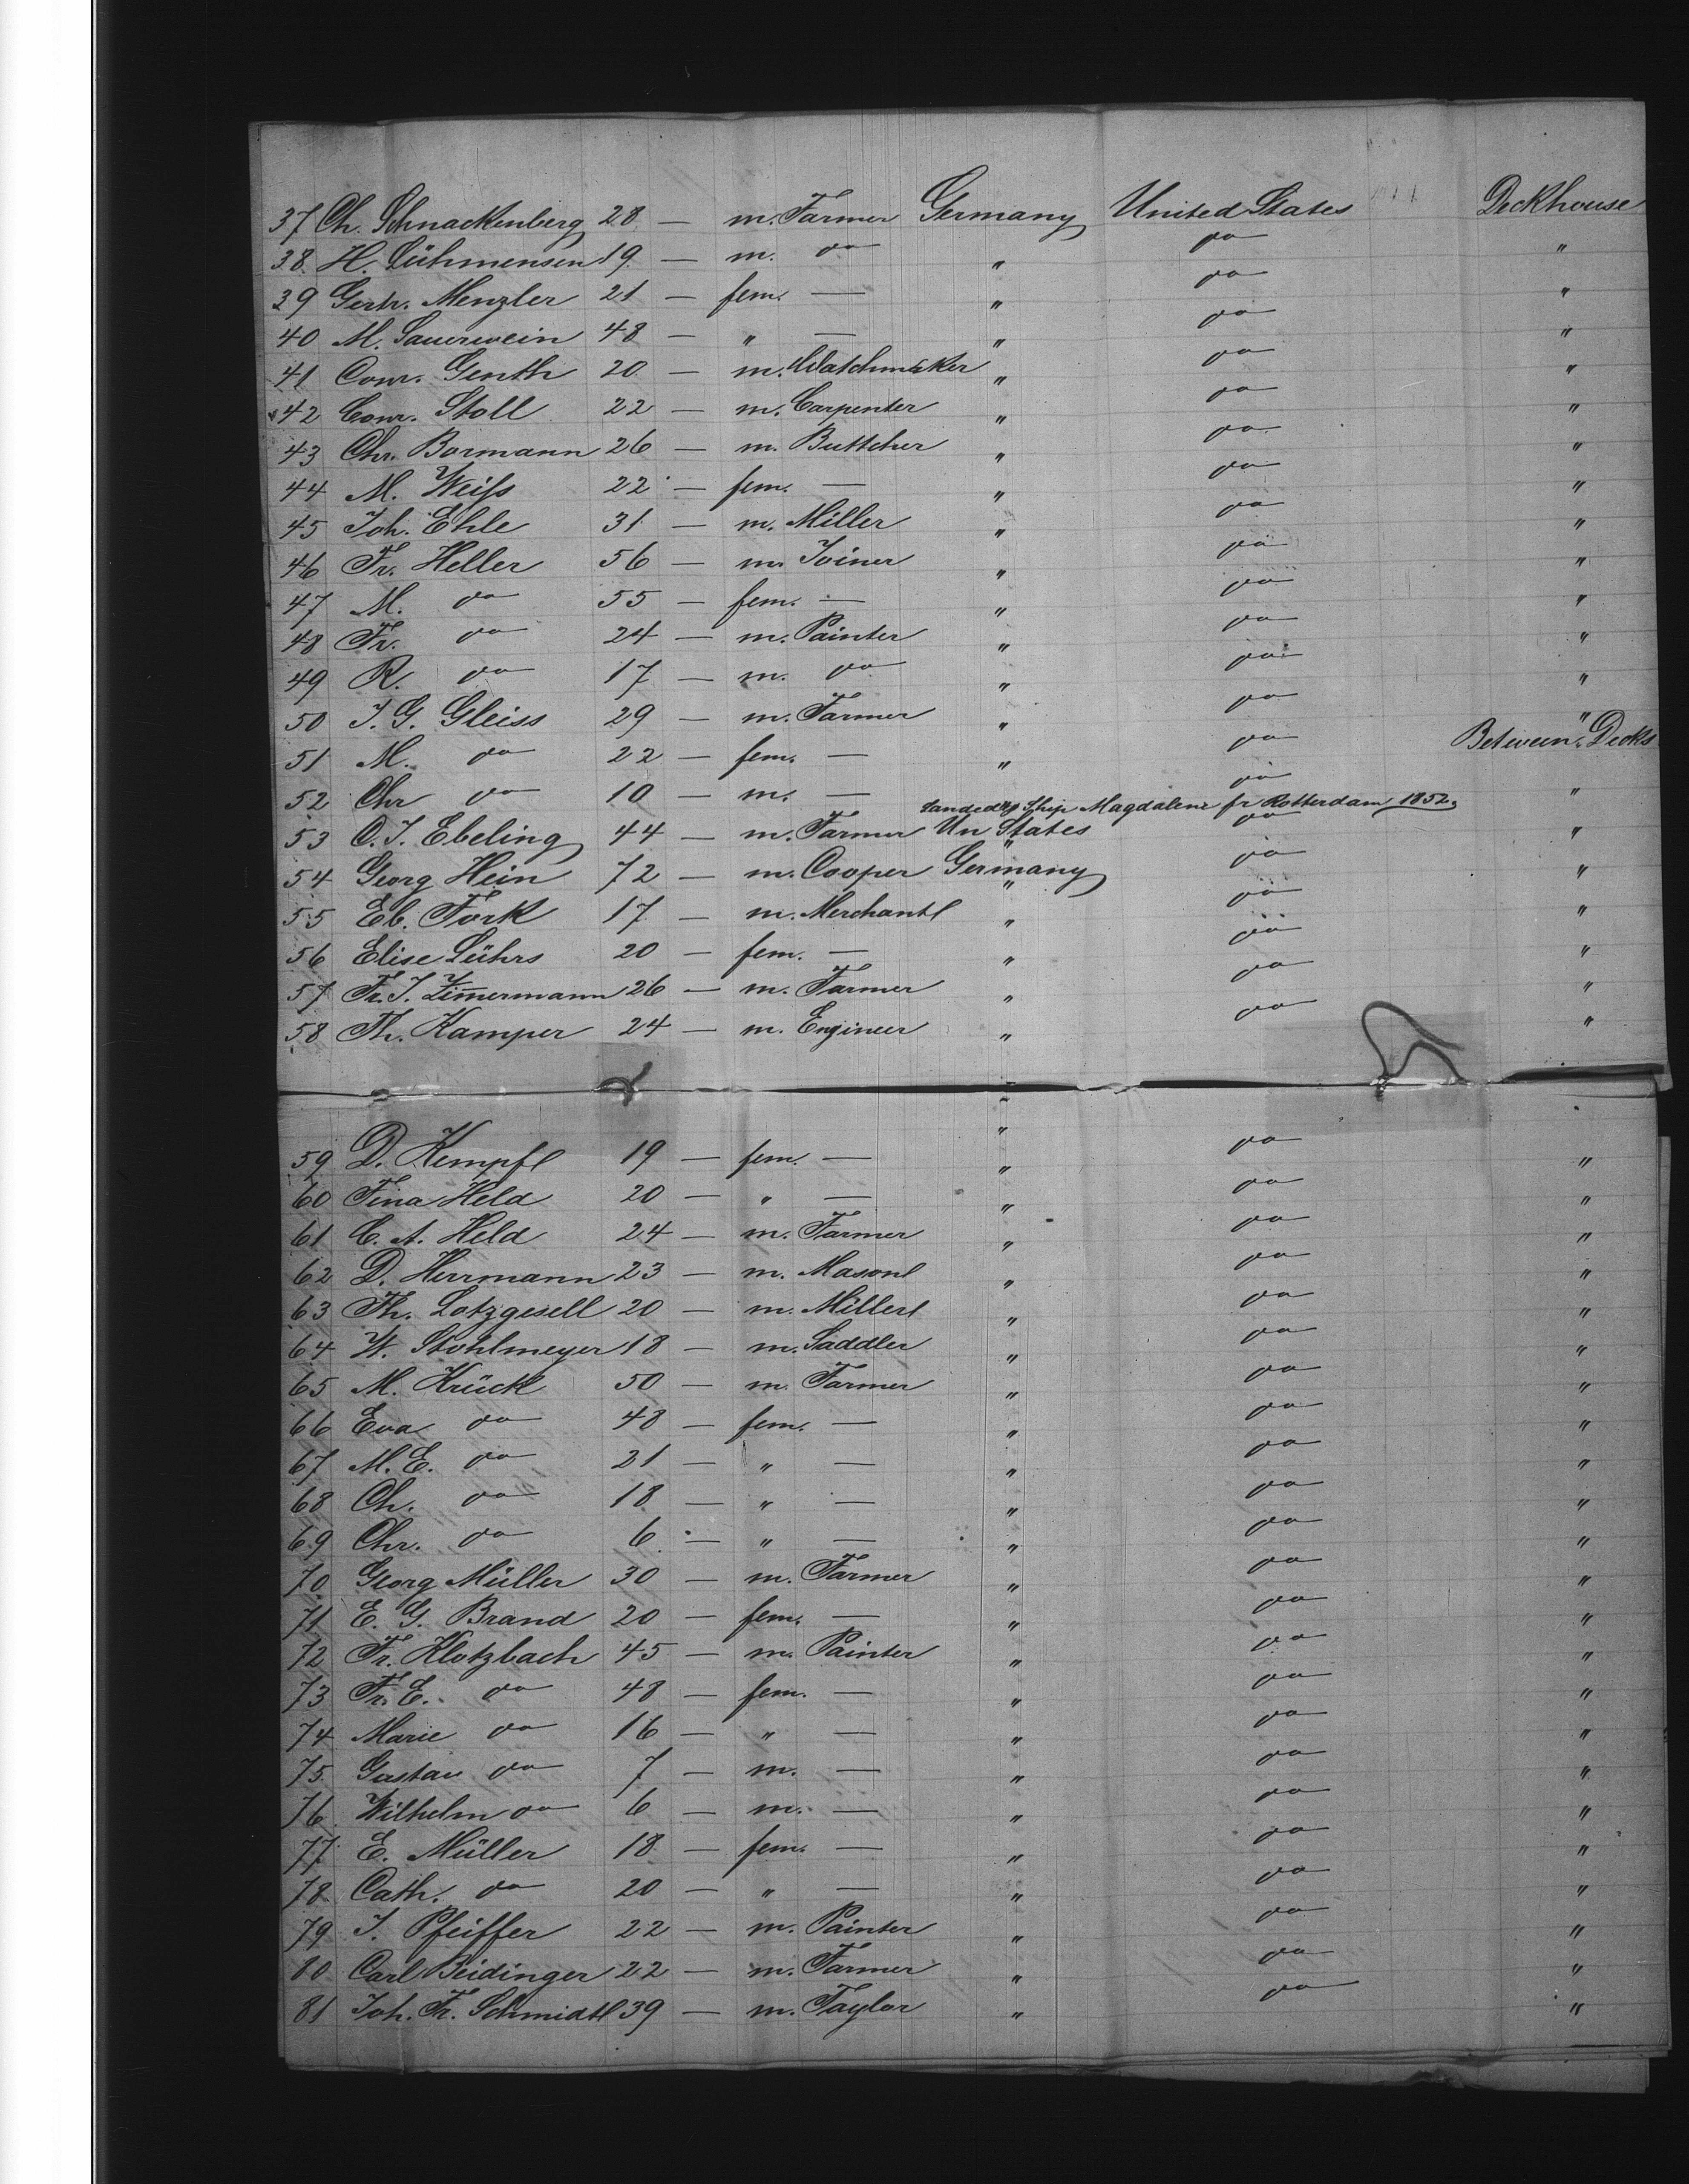 37 Ch. Schnackenberg 28 — m. Farmer Germany United States Deckhouse
38. H. Lühmensen 19 — m. do " do "
39 Gertr. Menzler 21 — fem. — " do "
40 M. Sauerwein 48 — " — " do "
41 Conr. Genth 20 — m. Watchmaker " do "
42 Conr. Stoll 22 — m. Carpenter " do "
43 Chr. Bormann 26 — m. Buttcher " do "
44 M. Weiſs 22 — fem. — " do "
45 Joh. Ehle 31 — m. Miller " do "
46 Fr. Heller 56 — m. Joiner " do "
47 M. do 55 — fem. — " do "
48 Fr. do 24 — m. Painter " do "
49 R. do 17 — m. do " do "
50 J. G. Gleiss 29 — m. Farmer " do "
51 M. do 22 — fem. — " do Between Decks
52 Chr do 10 — m. — do "
landed Ship Magdalene fr Rotterdam 1852.
53 C. J. Ebeling 44 — m. Farmer Un States do "
54 Georg Hein 72 — m. Cooper Germany do "
55 Eb. Fork 17 — m. Merchant " do "
56 Elise Lührs 20 — fem. — " do "
57 Fr. J. Zimmermann 26 — m. Farmer " do "
58 Th. Kamper 24 — m. Engineer " do "
59 D. Kempf 19 — fem. — " do "
60 Tina Held 20 — " — " do "
61 C. A. Held 24 — m. Farmer " do "
62 D. Herrmann 23 — m. Mason " do "
63 Th. Lotzgesell 20 — m. Miller " do "
64 W. Stohlmeyer 18 — m. Saddler " do "
65 M. Krück 50 — m. Farmer " do "
66 Eva do 48 — fem. — " do "
67 M. E. do 21 — " — " do "
68 Ch. do 18 — " — " do "
69 Chr. do 6 — " — " do "
70 Georg Müller 30 — m. Farmer " do "
71 E. G. Brand 20 — fem. — " do "
72 Fr. Klotzbach 45 — m. Painter " do "
73 Fr. E. do 48 — fem. — " do "
74 Marie do 16 — " — " do "
75 Gustav do 7 — m. — " do "
76 Wilhelm do 6 — m. — " do "
77 E. Müller 18 — fem. — " do "
78 Cath. do 20 — " — " do "
79 J. Pfeiffer 22 — m. Painter " do "
80 Carl Beidinger 22 — m. Farmer " do "
81 Joh. Fr. Schmidt 39 — m. Taylor " do "